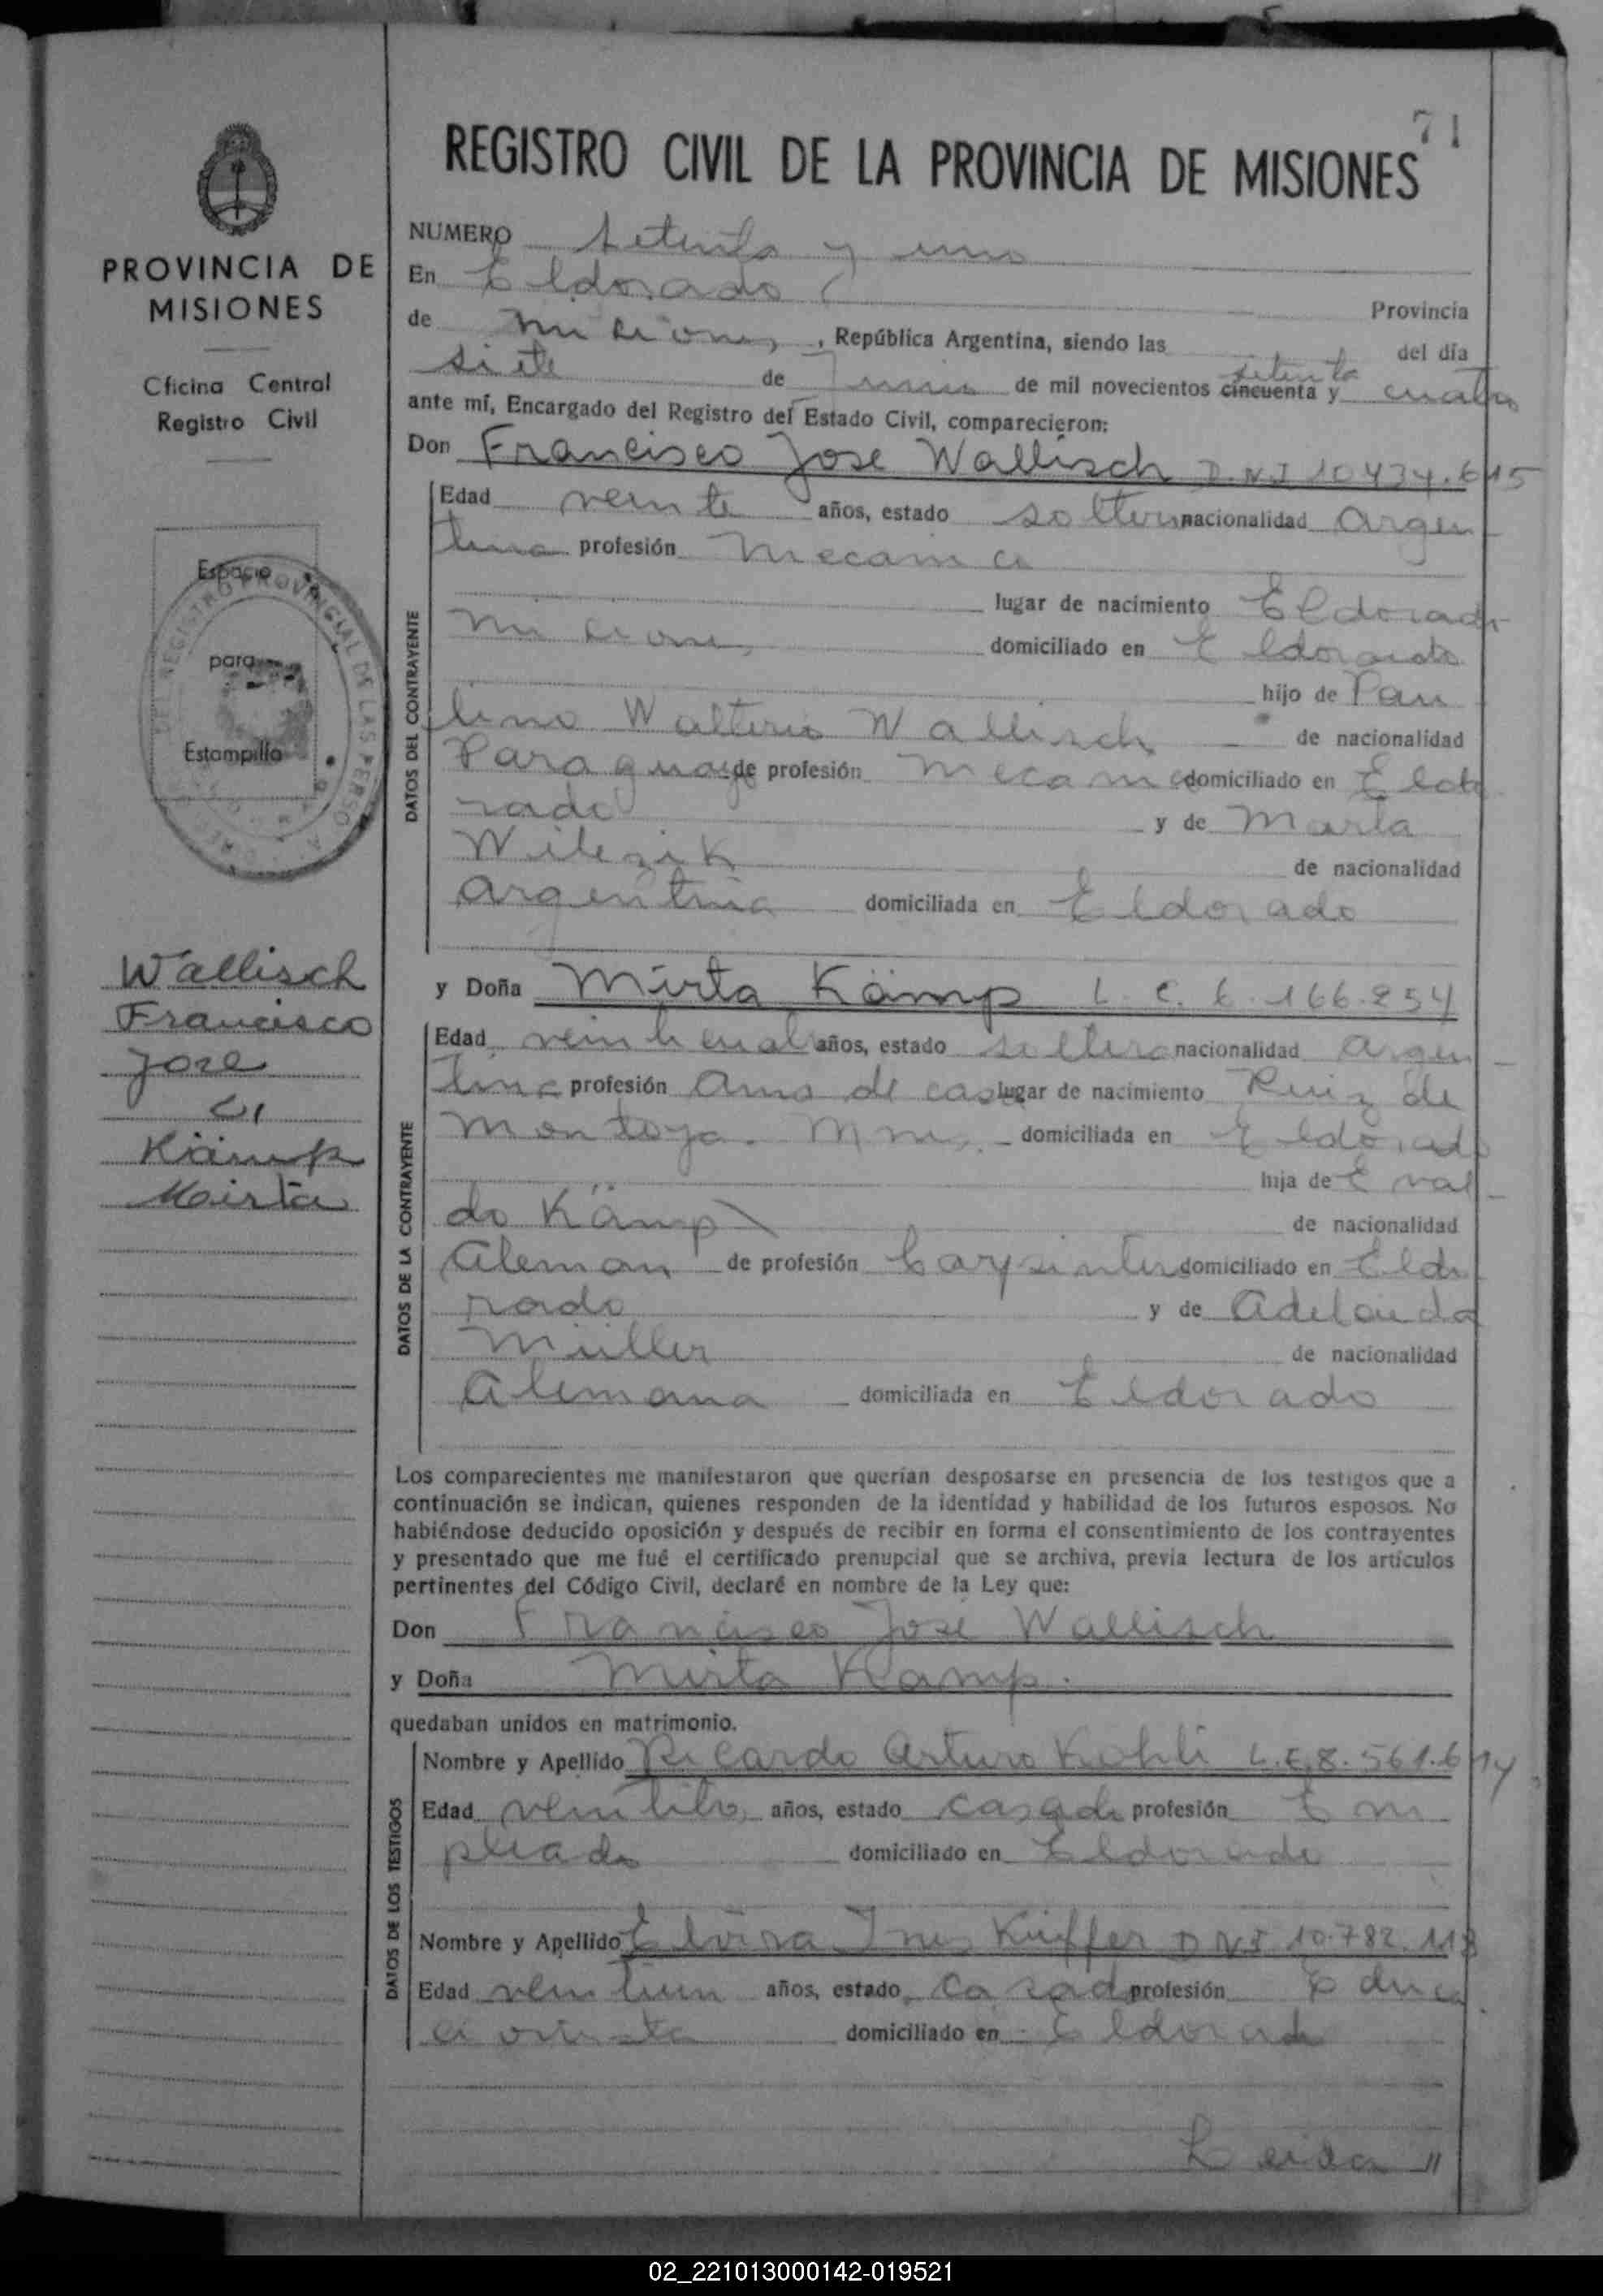 71
REGISTRO CIVIL DE LA PROVINCIA DE MISIONES
PROVINCIA DE
MISIONES
Oficina Central
Registro Civil
Espacio
para
Estampilla
Wallisch
Francisco
Jose
c/
Kämp
Mirta
NUMERO setenta y uno
En Eldorado
Provincia
de Misiones, República Argentina, siendo las del día
siete de Junio de mil novecientos cincuenta setenta y cuatro
ante mí, Encargado del Registro del Estado Civil, comparecieron:
Don Francisco Jose Wallisch D.N.I 10.434.615
DATOS DEL CONTRAYENTE
Edad veinte años, estado soltero nacionalidad Argen
tina profesión Mecanico
lugar de nacimiento Eldorado
Misiones domiciliado en Eldorado
hijo de Pau
lino Walterio Wallisch de nacionalidad
Paraguayo de profesión Mecanico domiciliado en Eldo
rado y de Marta
Wilezik de nacionalidad
Argentina domiciliada en Eldorado
y Doña Mirta Kämp L.C. 6.166.254
DATOS DE LA CONTRAYENTE
Edad veinticuatro años, estado soltera nacionalidad Argen
tina profesión Ama de casa lugar de nacimiento Ruiz de
Montoya. Mnes. domiciliada en Eldorado
hija de Eval
do Kämp de nacionalidad
Aleman de profesión Carpintero domiciliado en Eldo
rado y de Adelaida
Müller de nacionalidad
Alemana domiciliada en Eldorado
Los comparecientes me manifestaron que querían desposarse en presencia de los testigos que a
continuación se indican, quienes responden de la identidad y habilidad de los futuros esposos. No
habiéndose deducido oposición y después de recibir en forma el consentimiento de los contrayentes
y presentado que me fué el certificado prenupcial que se archiva, previa lectura de los artículos
pertinentes del Código Civil, declaré en nombre de la Ley que:
Don Francisco José Wallisch
y Doña Mirta Kamp.
quedaban unidos en matrimonio.
DATOS DE LOS TESTIGOS
Nombre y Apellido Ricardo Arturo Kohli L.E. 8.561.614
Edad años, estado casado profesión Em
pleado domiciliado en Eldorado
Nombre y Apellido Elvira Ines Küffer D.N.I 10.782.118
Edad veintiun años, estado casada profesión
domiciliado en Eldorado
Leida "
02_221013000142-019521